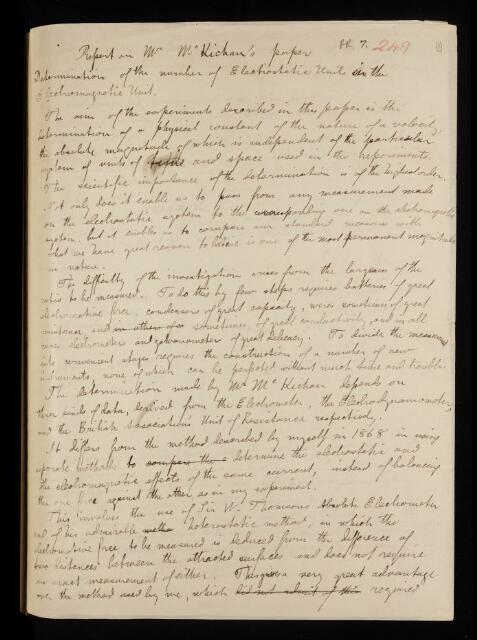 RR. 7. 249
Report on Mr McKichan's paper
Determination of the number of Electrostatic Units in the
Electromagnetic Unit.
The aim of the experiments described in this paper is the
determination of a physical constant of the nature of a velocity,
the absolute magnitude of which is independent of the particular
system of units of time and space used in the experiments.
The scientific importance of the determination is of the highest order.
Not only does it enable us to pass from any measurement made
on the electrostatic system to the corresponding one on the electromagnetic
system, but it enables us to compare our standard measures with
what we have great reason to believe is one of the most permanent magnitudes
in nature.
The difficulty of the investigation arises from the largeness of the
ratio to be measured. To do this by few steps requires batteries of great
electromotive force, condensers of great capacity, wires sometimes of great
resistance, and in others sometimes of great conductivity, and in all
cases electrometer and galvanometer of great delicacy. To divide the measurement
into convenient stages requires the construction of a number of new
instruments, none of which can be perfected without much time and trouble.
The determination made by Mr McKichan depends on
three kinds of data, derived from the Electrometer, the Electrodynamometer,
and the British Association Unit of Resistance respectively.
It differs from the method described by myself in 1868 in using
separate methods to compare the determine the electrostatic and
the electromagnetic effects of the same current, instead of balancing
the one against the other, as in my experiment.
This involves the use of Sir W. Thomsons Absolute Electrometer
and of his admirable metho heterostatic method, in which the
electromotive force to be measured is deduced from the difference of
two distances between the attracted surfaces and does not require
an exact measurement of either. This gives a very great advantage
over the method used by me, which did not admit of this required